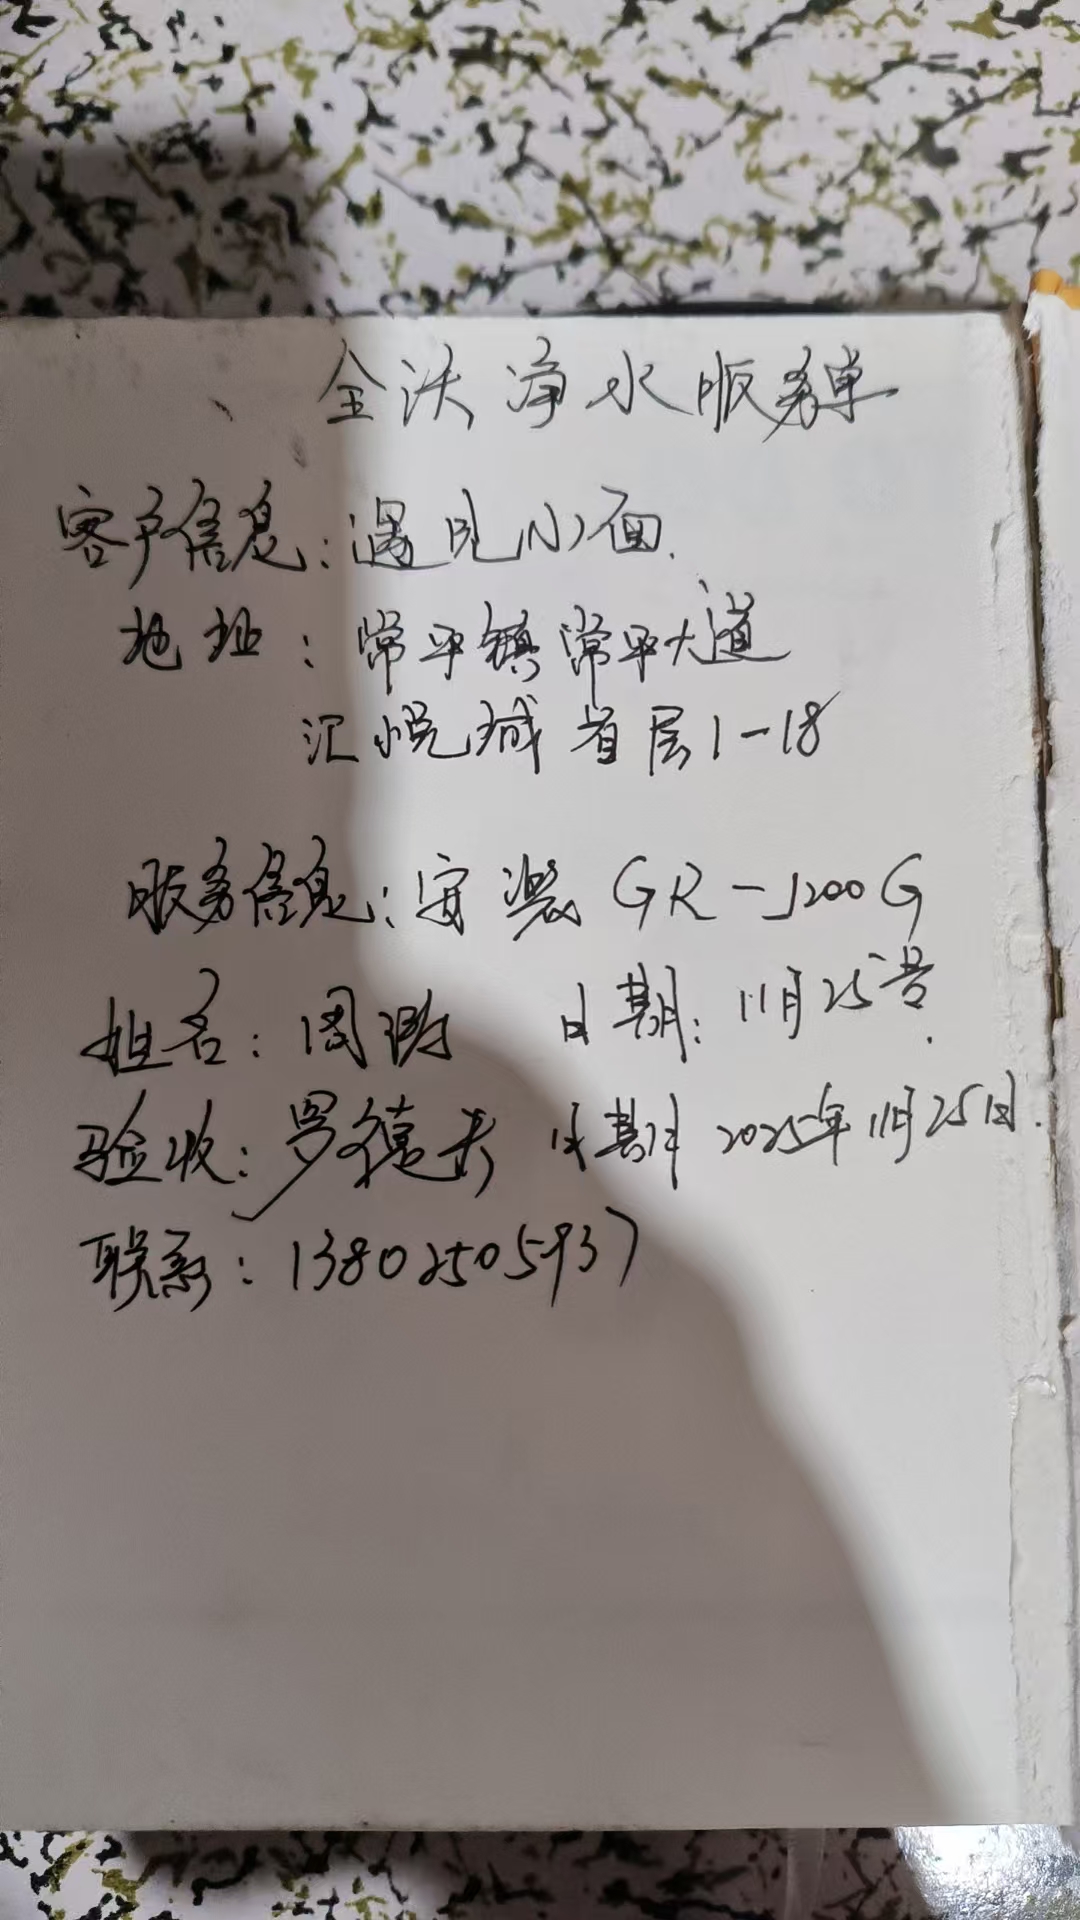 全沃净水服务单
客户信息：遇见小面.
地址：常平镇常平大道
汇悦城首层1-18
服务信息：安装 GR-1200G
姓名：周 日期：11月25号.
验收：罗德夫 日期 2025年11月25日.
联系：13802505937